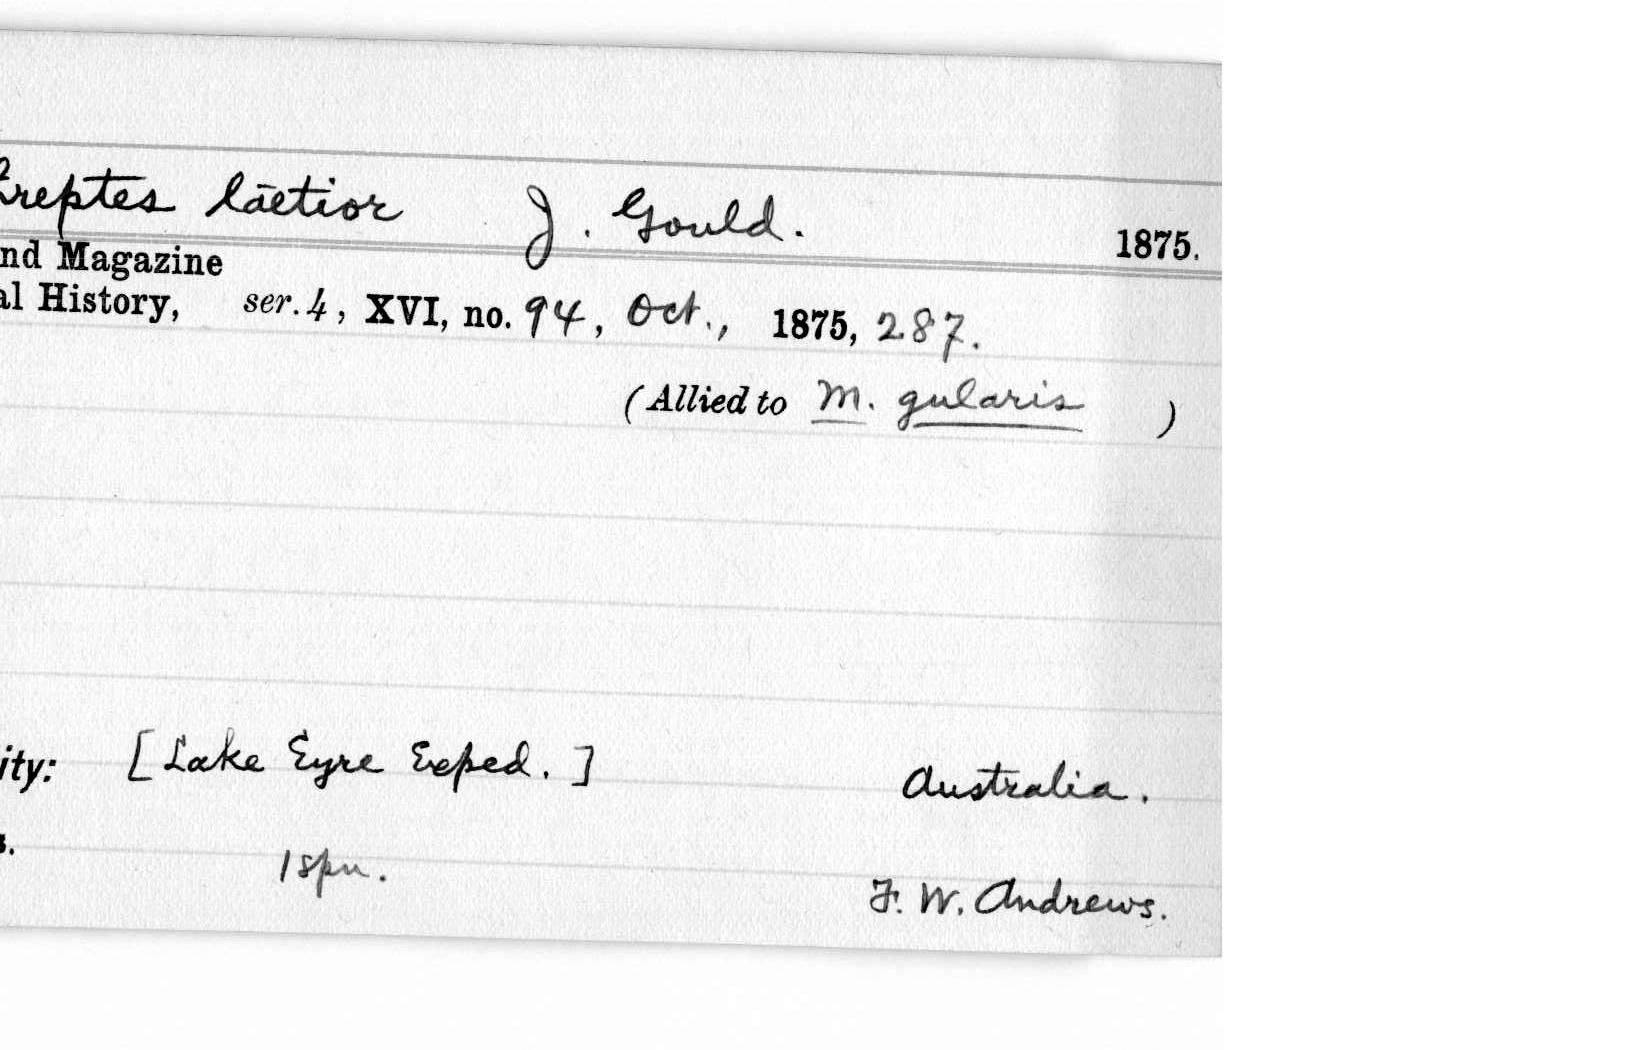 reptes lāetior J. Gould. 1875.
nd Magazine
al History, ser. 4, XVI, no. 94, Oct., 1875, 287.
(Allied to M. gularis )
ity: [Lake Eyre Exped.] Australia.
s. 1 spn. F. W. Andrews.